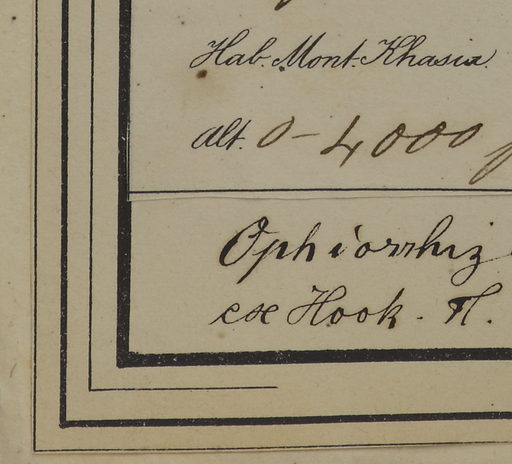 Hab. Mont. Khasia.
Alt. 0-4000
Ophiorrhiz
ex Hook. Fl.